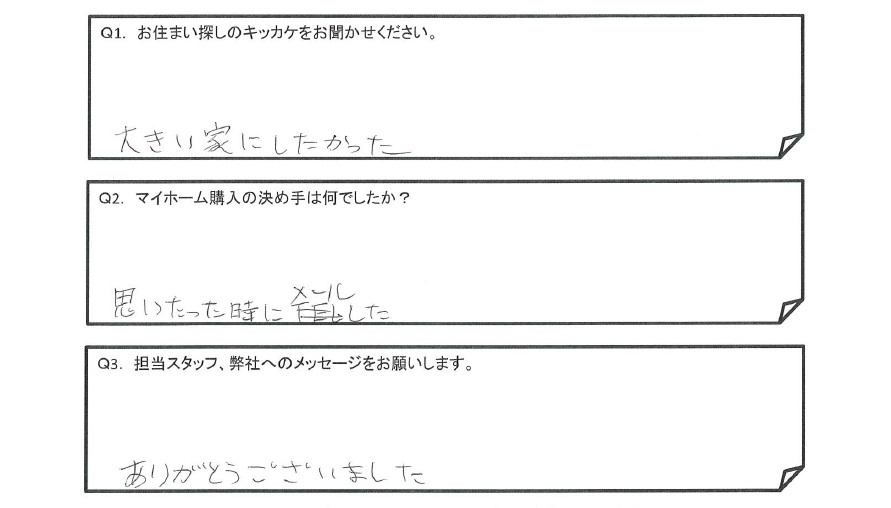 Q1. お住まい探しのキッカケをお聞かせください。
大きい家にしたかった
Q2. マイホーム購入の決め手は何でしたか？
思いたった時にメールした
Q3. 担当スタッフ、弊社へのメッセージをお願いします。
ありがとうございました